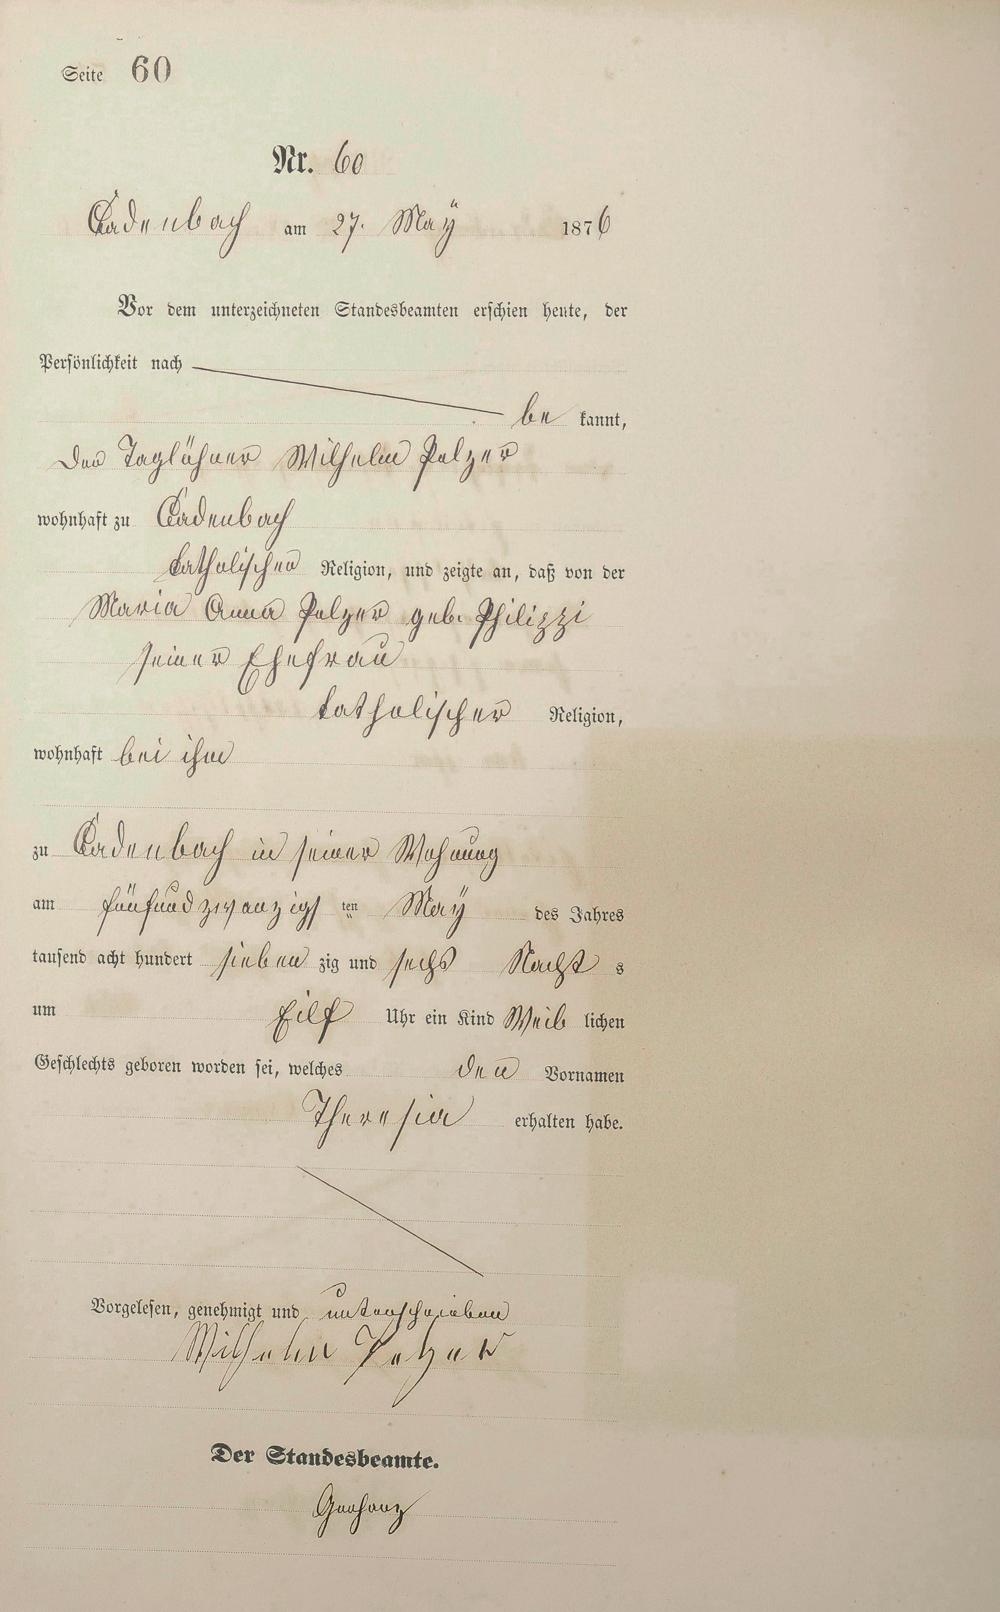 Seite 60
Nr. 60
Cadenbach am 27. Maÿ 1876
Vor dem unterzeichneten Standesbeamten erschien heute, der
Persönlichkeit nach
be kannt,
der Taglöhner Wilhelm Pelzer
wohnhaft zu Cadenbach
katholischer Religion, und zeigte an, daß von der
Maria Anna Pelzer geb. Philippi
seiner Ehefrau
katholischer Religion,
wohnhaft bei ihm
zu Cadenbach in seiner Wohnung
am fünfundzwanzigs ten Maÿ des Jahres
tausend acht hundert sieben zig und sechs Nacht s
um Eilf Uhr ein Kind Weib lichen
Geschlechts geboren worden sei, welches den Vornamen
Theresia erhalten habe.
Vorgelesen, genehmigt und unterschrieben
Wilhelm Pelzer
Der Standesbeamte.